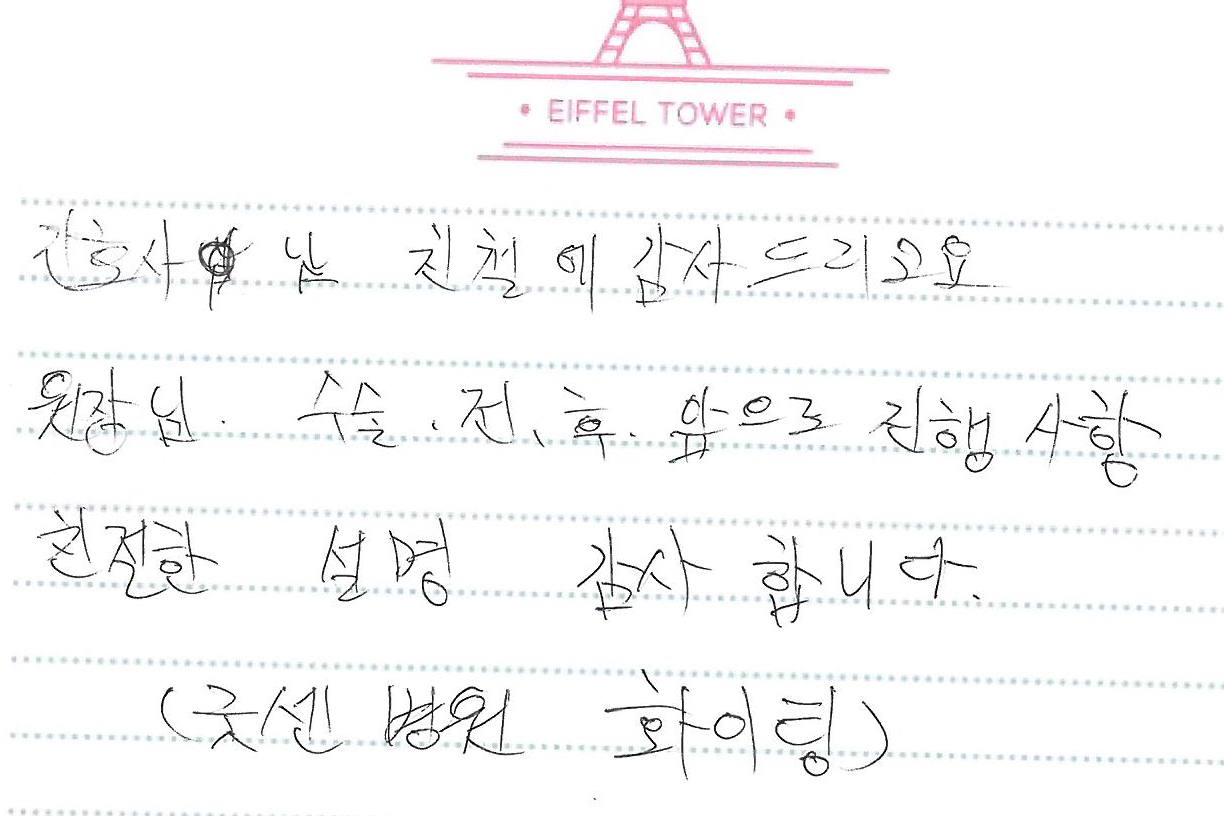 • EIFFEL TOWER •
간호사 님 친철에 감사드리고요
원장님. 수술.전、후. 앞으로 진행 사항
친절한 설명 감사 합니다.
(굿센 병원 화이팅)